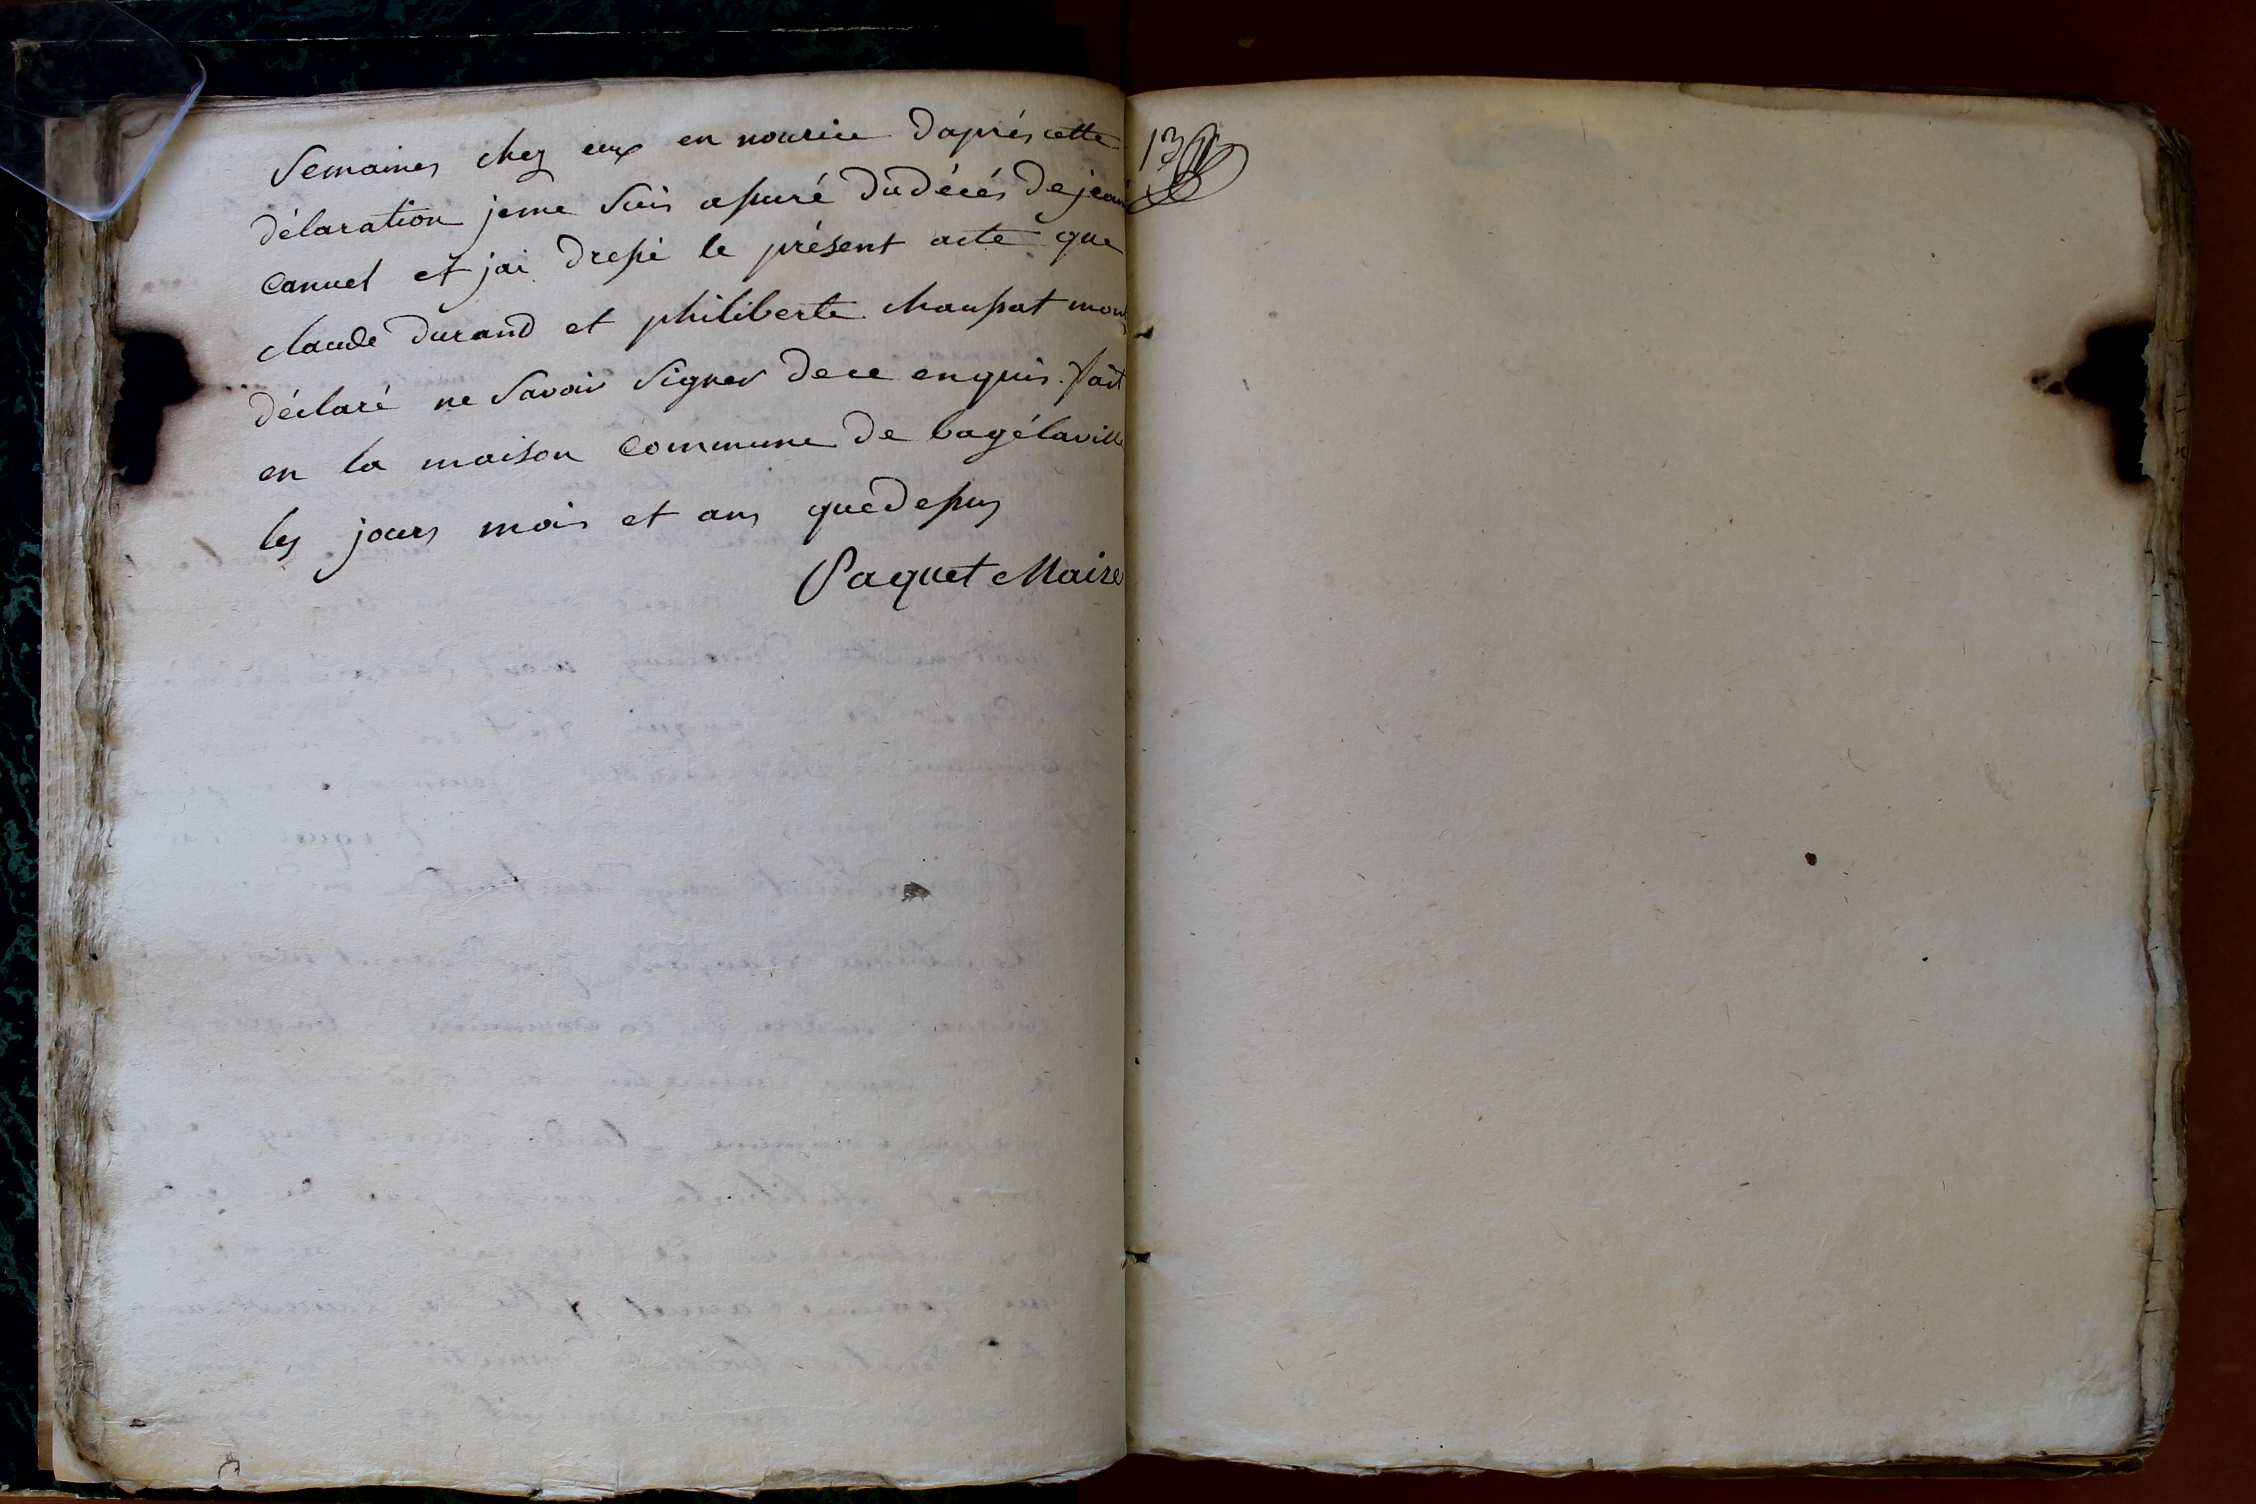 Semaines chez eux en nourice Daprés cette
délaration jeme Suis assuré Du décés De jean
Canuel et jai Dressé le présent acte que
claude Durand et philiberte chaussat mont
déclaré ne Savoir Signer De ce enquis. fait
en la maison Commune De bagélaville
les jours mois et ans que Dessus
Paquet Maire
13